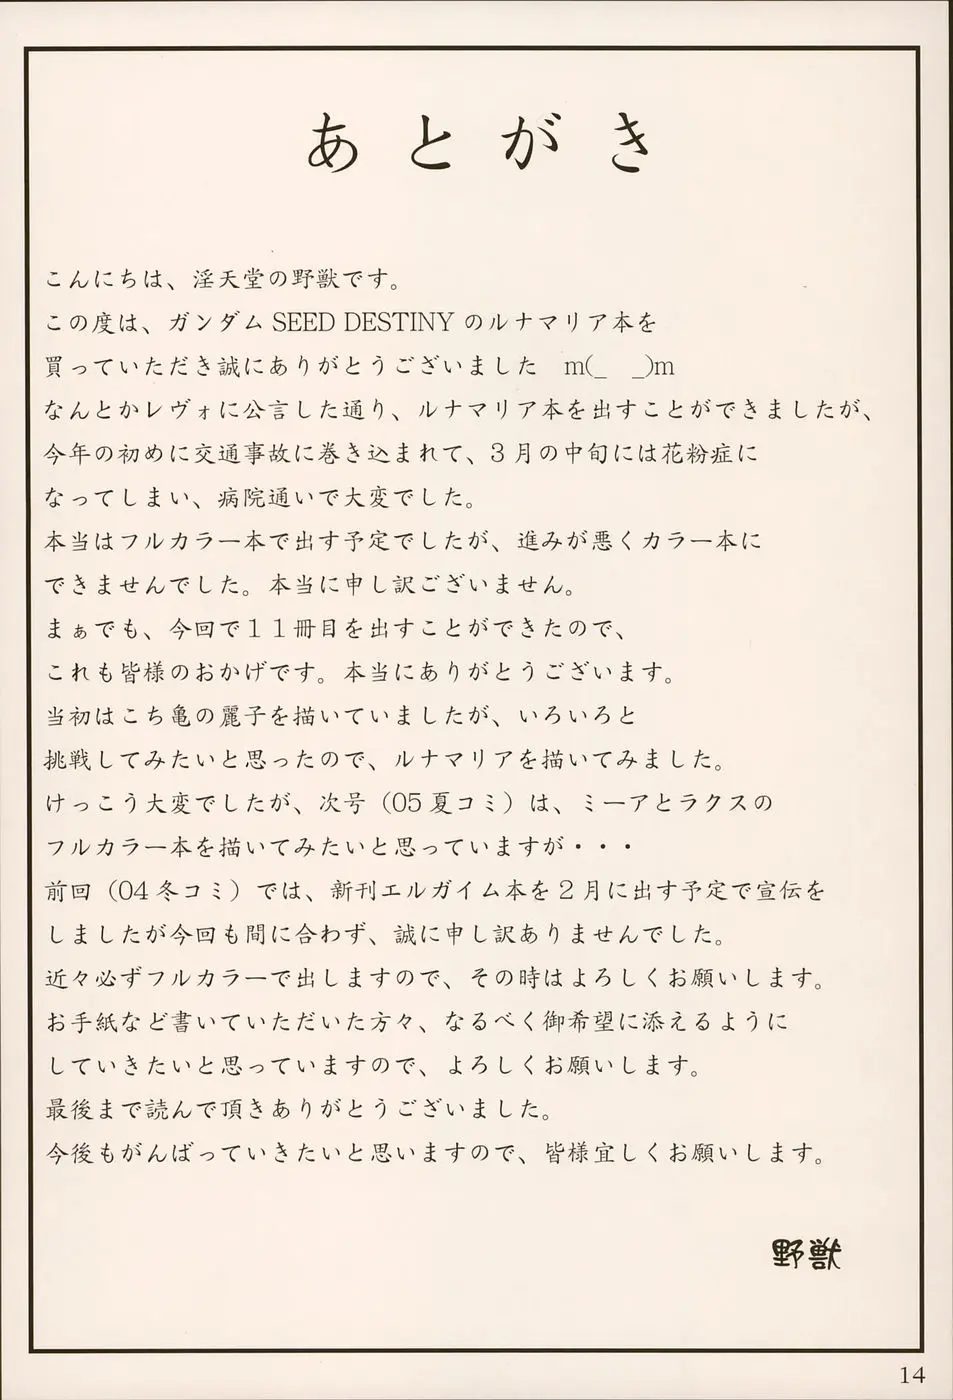 あとがき
こんにちは、淫天堂の野獣です。
この度は、ガンダム SEED DESTINY のルナマリア本を
買っていただき誠にありがとうございました　m(_　_)m
なんとかレヴォに公言した通り、ルナマリア本を出すことができましたが、
今年の初めに交通事故に巻き込まれて、3月の中旬には花粉症に
なってしまい、病院通いで大変でした。
本当はフルカラー本で出す予定でしたが、進みが悪くカラー本に
できませんでした。本当に申し訳ございません。
まぁでも、今回で１１冊目を出すことができたので、
これも皆様のおかげです。本当にありがとうございます。
当初はこち亀の麗子を描いていましたが、いろいろと
挑戦してみたいと思ったので、ルナマリアを描いてみました。
けっこう大変でしたが、次号（05夏コミ）は、ミーアとラクスの
フルカラー本を描いてみたいと思っていますが・・・
前回（04冬コミ）では、新刊エルガイム本を2月に出す予定で宣伝を
しましたが今回も間に合わず、誠に申し訳ありませんでした。
近々必ずフルカラーで出しますので、その時はよろしくお願いします。
お手紙など書いていただいた方々、なるべく御希望に添えるように
していきたいと思っていますので、よろしくお願いします。
最後まで読んで頂きありがとうございました。
今後もがんばっていきたいと思いますので、皆様宜しくお願いします。
野獣
14